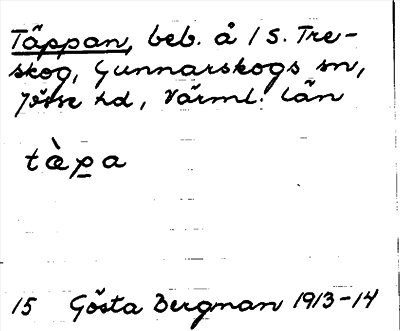 Täppan, beb. å 1 S. Tre-
skog, Gunnarskogs sn,
Jösse hd, Värml. län
tæ̀p̲a
15 Gösta Bergman 1913-14